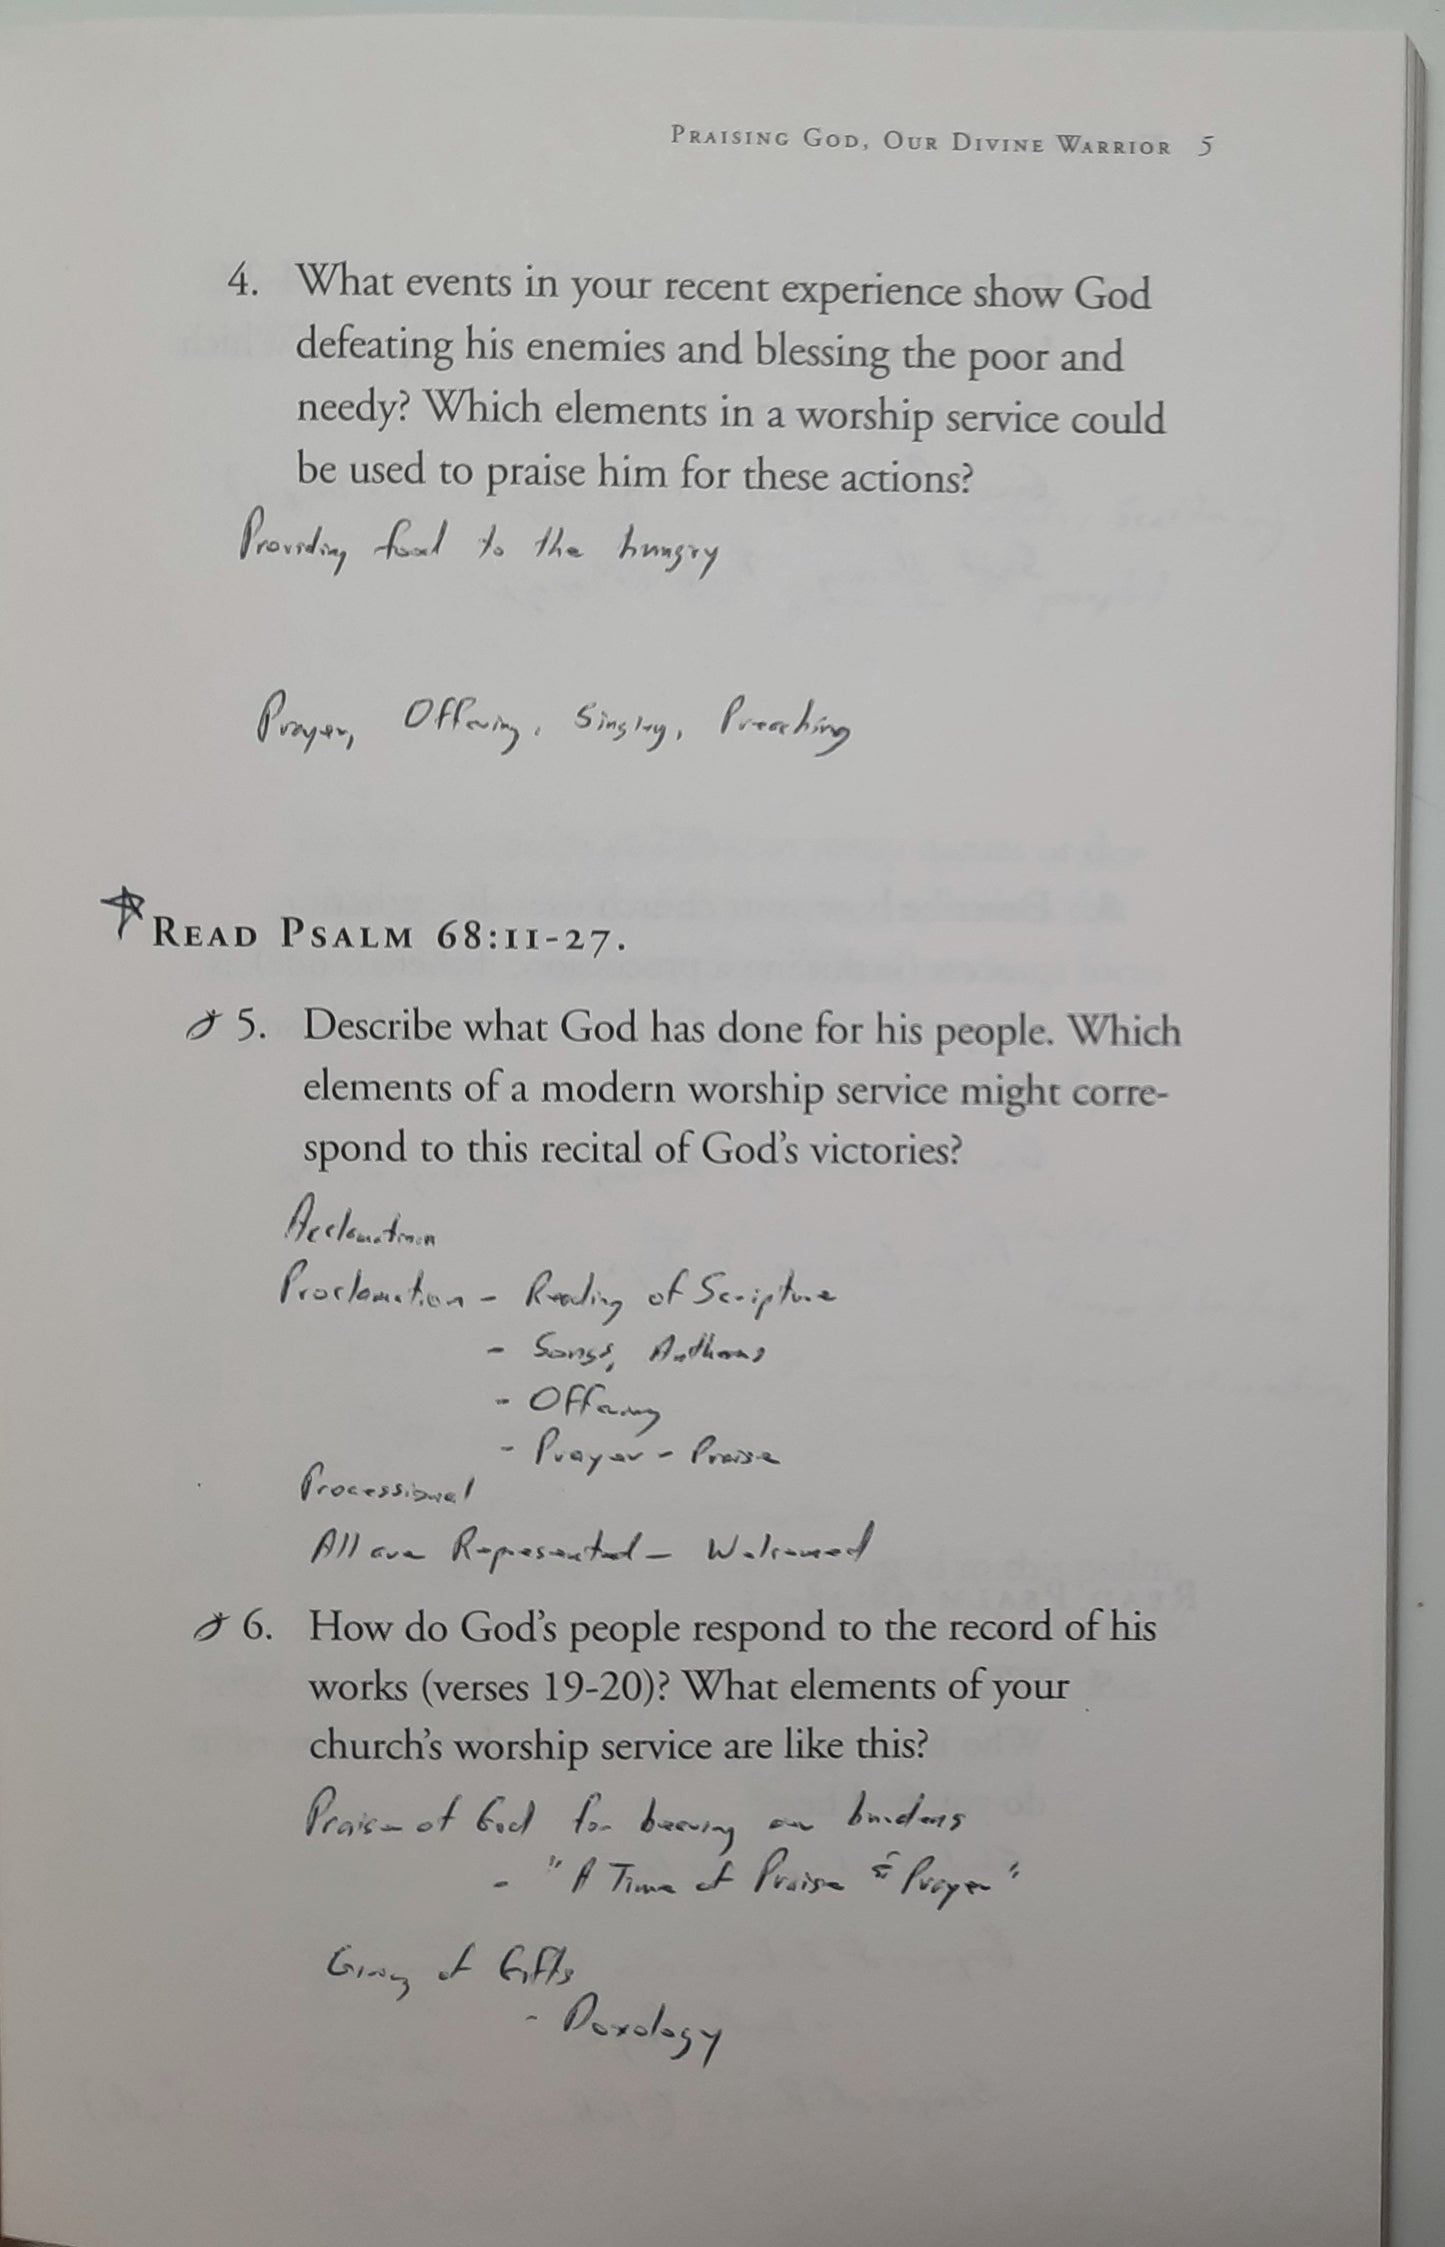 Praising God, Our Divine Warrior 5
4. What events in your recent experience show God
defeating his enemies and blessing the poor and
needy? Which elements in a worship service could
be used to praise him for these actions?
Providing food to the hungry
Prayer, Offering, Singing, Preaching
Read Psalm 68:11-27.
5. Describe what God has done for his people. Which
elements of a modern worship service might corre-
spond to this recital of God's victories?
Acclamation
Proclamation - Reading of Scripture
- Songs, Anthems
- Offering
- Prayer - Praise
Processional
All are Represented - Welcomed
6. How do God's people respond to the record of his
works (verses 19-20)? What elements of your
church's worship service are like this?
Praise of God for bearing our burdens
- "A Time of Praise & Prayer"
Giving of Gifts
- Doxology